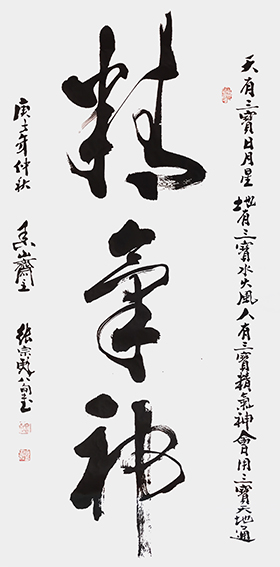 天有三寶日月星地有三寶水火風人有三寶精氣神會用三寶天地通
精氣神
庚子年仲秋 齋 張宗